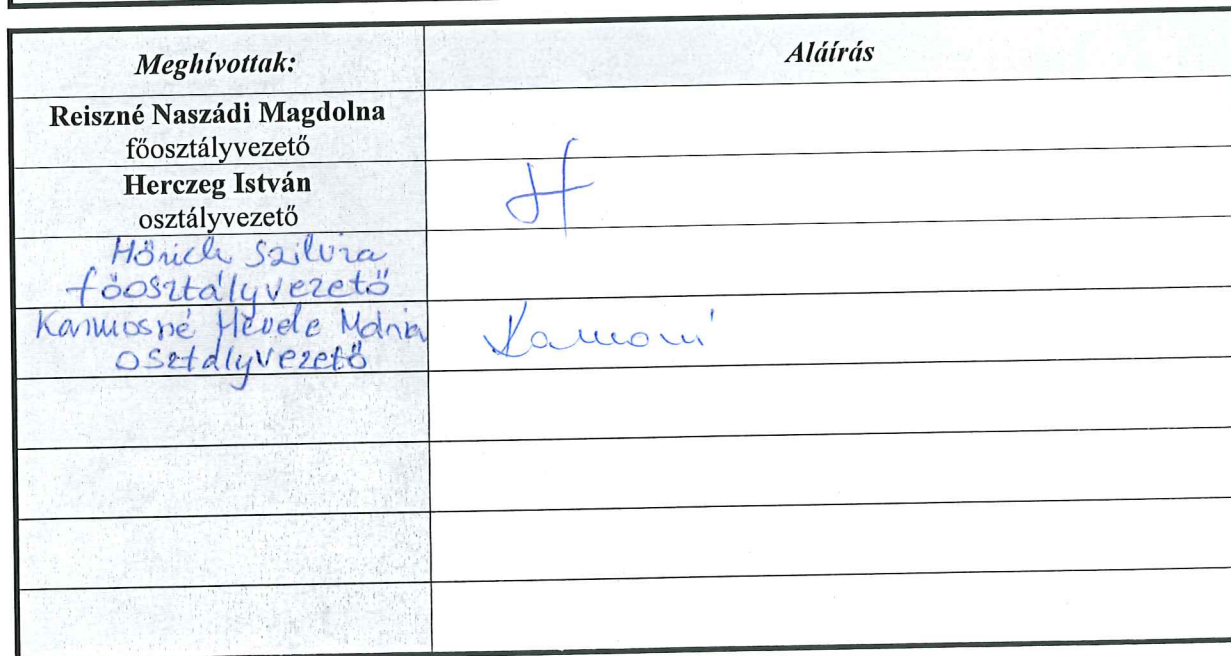 Meghívottak: Aláírás
Reiszné Naszádi Magdolna
főosztályvezető
Herczeg István
osztályvezető
Hörich Szilvia
főosztályvezető
Mária
osztályvezető